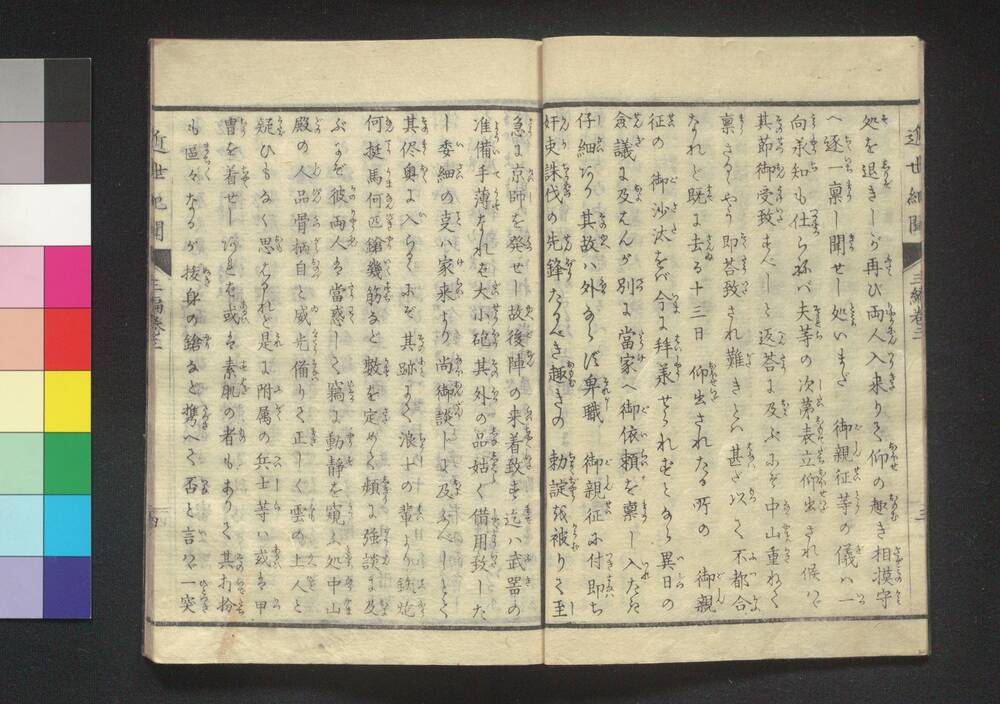 近世紀聞 三編巻三 三
処を退きしが再び両人入来りて仰の趣き相摸守
へ逐一稟し聞せし処いまだ 御親征等の儀ハ一
向承知も仕らねバ夫等の次第表立仰出され候ハヾ
其節御受致すべしと返答に及ぶにぞ中山重ねて
稟さるゝやう即答致され難きとハ甚ざ以て不都合
なれど既に去る十三日 仰出されたる所の 御親
征の 御沙汰をバ今に拝承せられずとあら異日の
僉議に及はんが別に當家へ御依頼を稟し入たき
仔細あり其故ハ外ならず卑職 御親征に付即ち
奸吏誅伐の先鋒たるべき趣きの 勅諚を被りて至
急に京師を発せし故後陣の来着致す迄ハ武器の
准備手薄なれを大小砲其外の品姑く備用致した
し委細の支ハ家来より尚御談しに及ぶべしとて
其侭奥に入らるゝにぞ其跡にて浪士の輩より銃炮
何挺馬何匹鎗幾筋など數を定めて頻に強談に及
ぶにぞ彼両人は當惑して竊に動静を窺ふ処中山
殿の人品骨柄自と威光備りて正しく雲の上人と
疑ひもなく思はるれど是に附属の兵士等ハ或は甲
冑を着せしありとも或は素肌の者もありて其打扮
も區々なるが抜身の鎗など携へて否と言ハヾ一突
近世紀聞 三編巻三